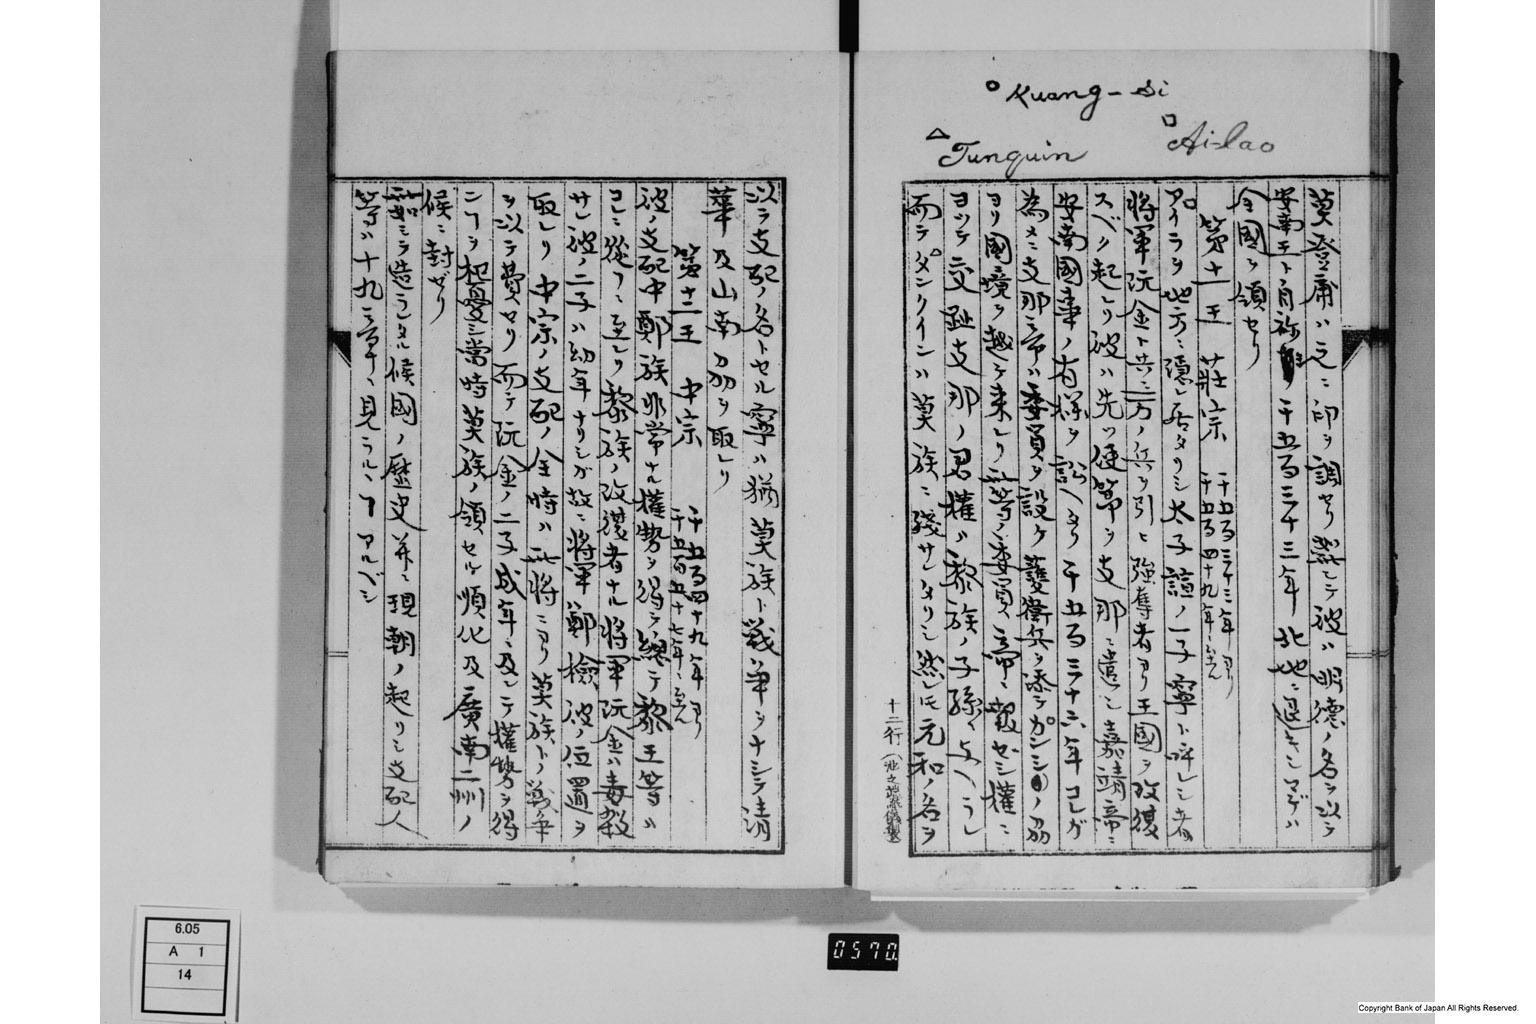 Kuang-Si
Ai-lao
Tunquin
莫登庸ハ之ニ印ヲ調セリ然レテ彼ハ明德ノ名ヲ以ラ
安南王ト自称シ千五百三十三年北地ニ退キシマデハ
全國ヲ領セリ
第十一王 莊宗 千五百三十三年ヨリ
千五百四十九年ニ至ル
アイラヲ地方ニ隱レ居タリシ太子諠ノ一子寧ト呼レシ者
將軍阮金ト共ニ一方ノ兵ヲ引ヒ強奪者ヨリ王國ヲ攻復
スベク起レリ彼ハ先ツ使節ヲ支那ニ遣シ嘉靖帝ニ
安南國事ノ有様ヲ訟ヘタリ千五百三十六年コレガ
為メニ支那帝ハ委員ヲ設ケ護衛兵ヲ添テカンシノ刕
ヨリ國境ヲ越ケ来レリ此等ノ委員帝ニ報ゼシ權ニ
ヨツテ交趾支那ノ君權ハ黎族ノ子孫ニ与ヘラレ
而テタンクインハ莫族ニ殘サレタリシ然レ𪜈元和ノ名ヲ
十二行
以テ支配ノ名トセル寧ハ猶莫族ト戰争ヲナシテ清
華及山南刕ヲ取レリ
第十二王 中宗 千五百四十九年ヨリ
千五百五十七年ニ至ル
彼ノ支配中鄭族非常ナル權勢ヲ得テ総テ黎王等ハ
コレニ從フニ至レリ黎族ノ改復者ナル將軍阮金ハ毒殺
サレ彼ノ二子ハ幼年ナリシガ故ニ將軍ハ鄭檢彼ノ位置ヲ
取レリ中宗ノ支配ノ全時ハ此將ニヨリ莫族トノ戰争
ヲ以テ費セリ而テ阮金ノ二子成年ニ及レテ權勢ヲ得
ニヿヲ杞憂シ當時莫族ノ領セル順化及廣南二州ノ
候ニ封ゼリ
如此ミラ造ラレタル候國ノ歴史并ニ現朝ノ起リシ支配人
等ハ十九章ニ見ラルヽヿアルベシ
6.05
A 1
14
0570
Copyright Bank of Japan All Rights Reserved.